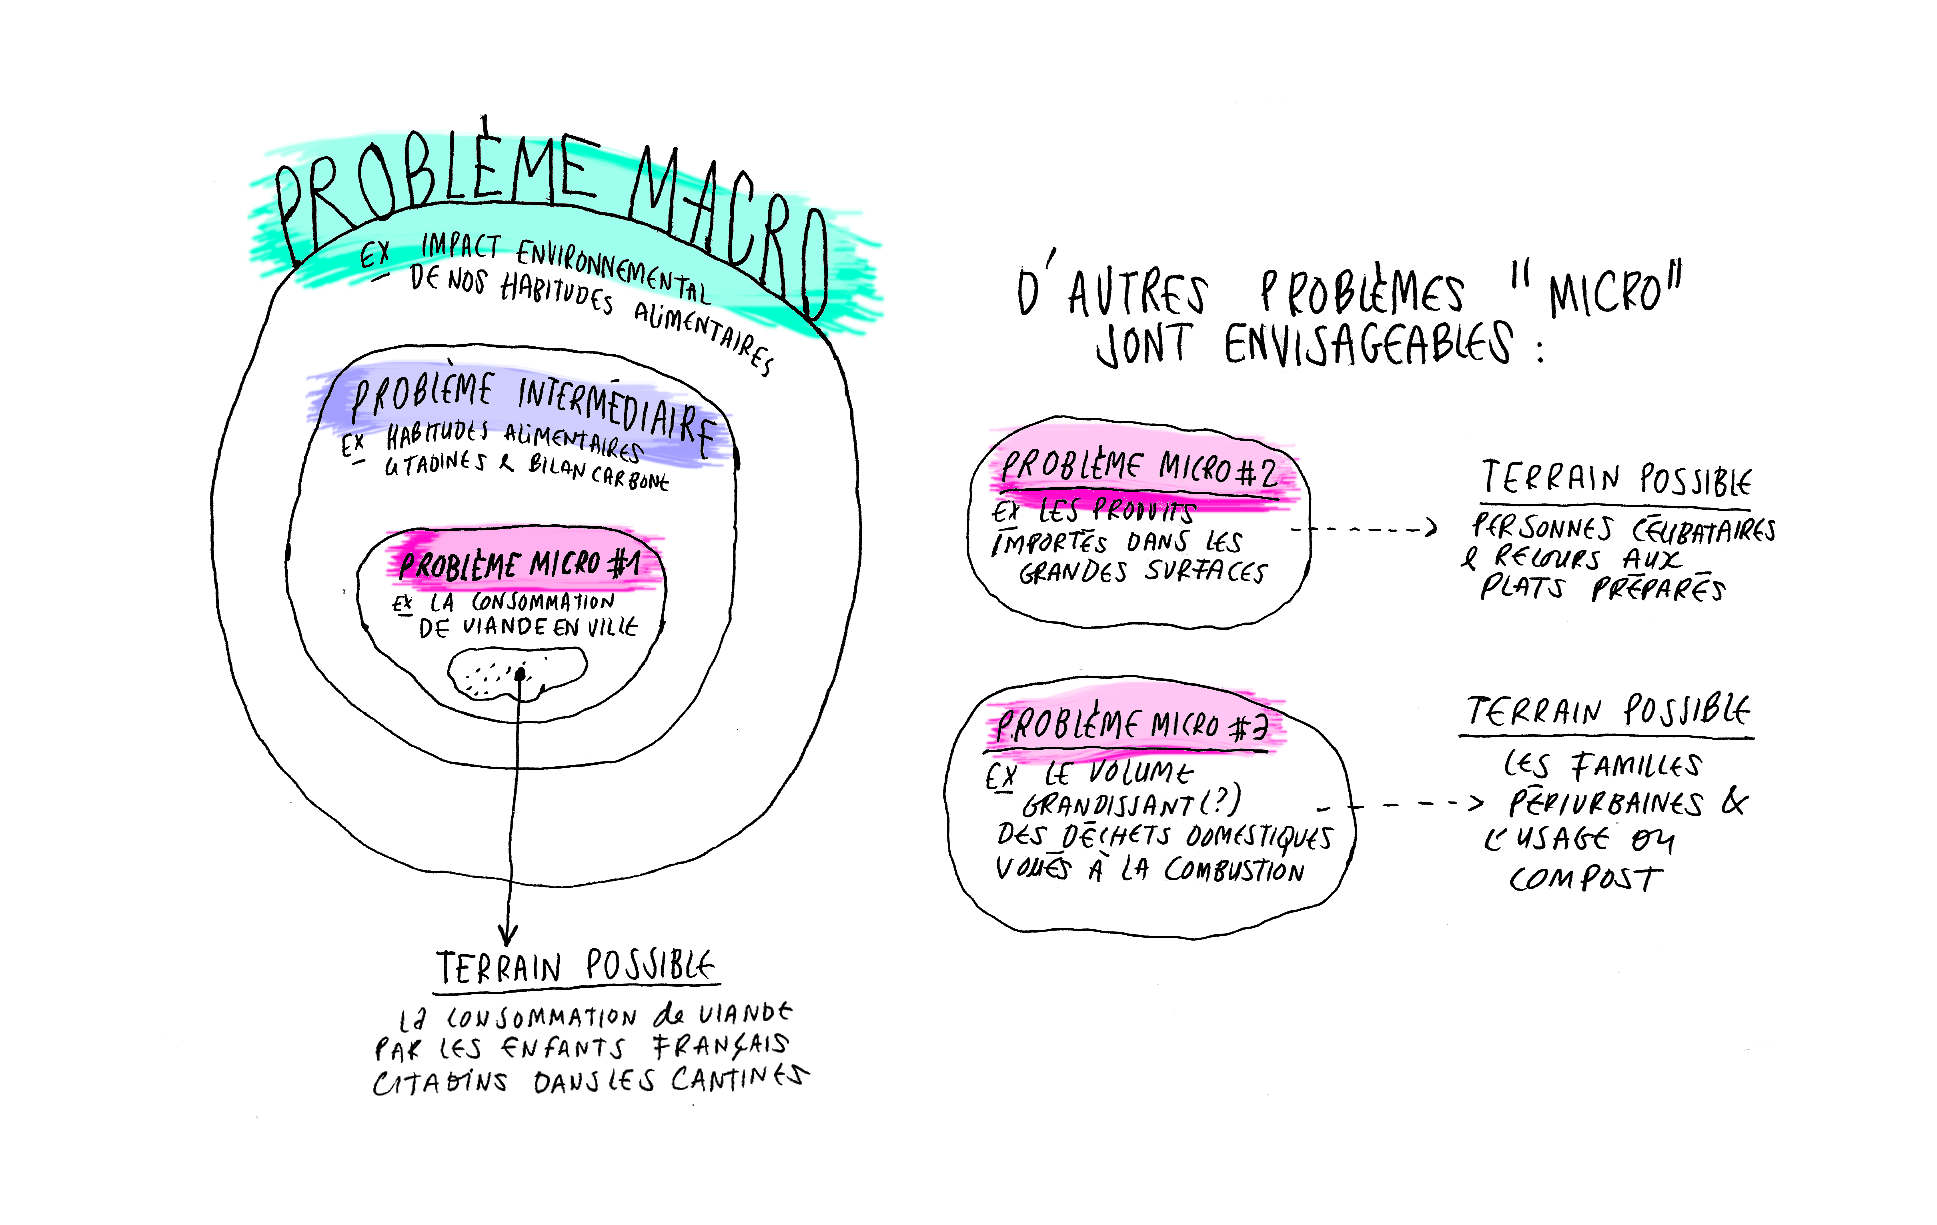 PROBLÈME MACRO
EX IMPACT ENVIRONNEMENTAL
DE NOS HABITUDES ALIMENTAIRES
PROBLÈME INTERMÉDIAIRE
EX HABITUDES ALIMENTAIRES
CITADINES & BILAN CARBONE
PROBLÈME MICRO #1
EX LA CONSOMMATION
DE VIANDE EN VILLE
TERRAIN POSSIBLE
LA CONSOMMATION de VIANDE
PAR LES ENFANTS FRANÇAIS
CITADINS DANS LES CANTINES
D'AUTRES PROBLÈMES "MICRO"
SONT ENVISAGEABLES :
PROBLÈME MICRO #2
EX LES PRODUITS
IMPORTÉS DANS LES
GRANDES SURFACES
TERRAIN POSSIBLE
PERSONNES CÉLIBATAIRES
& RECOURS AUX
PLATS PRÉPARÉS
PROBLÈME MICRO #3
EX LE VOLUME
GRANDISSANT (?)
DES DÉCHETS DOMESTIQUES
VOUÉS À LA COMBUSTION
TERRAIN POSSIBLE
LES FAMILLES
PÉRIURBAINES &
L'USAGE DU
COMPOST